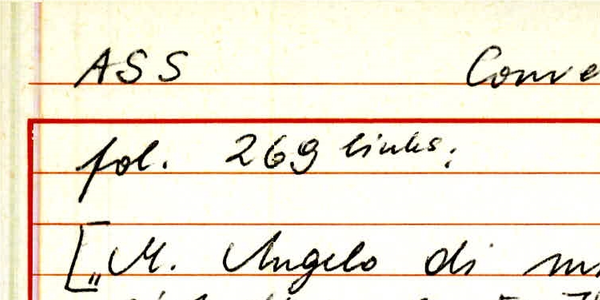 ASS Conve
fol. 269 links:
[„M. Angelo di